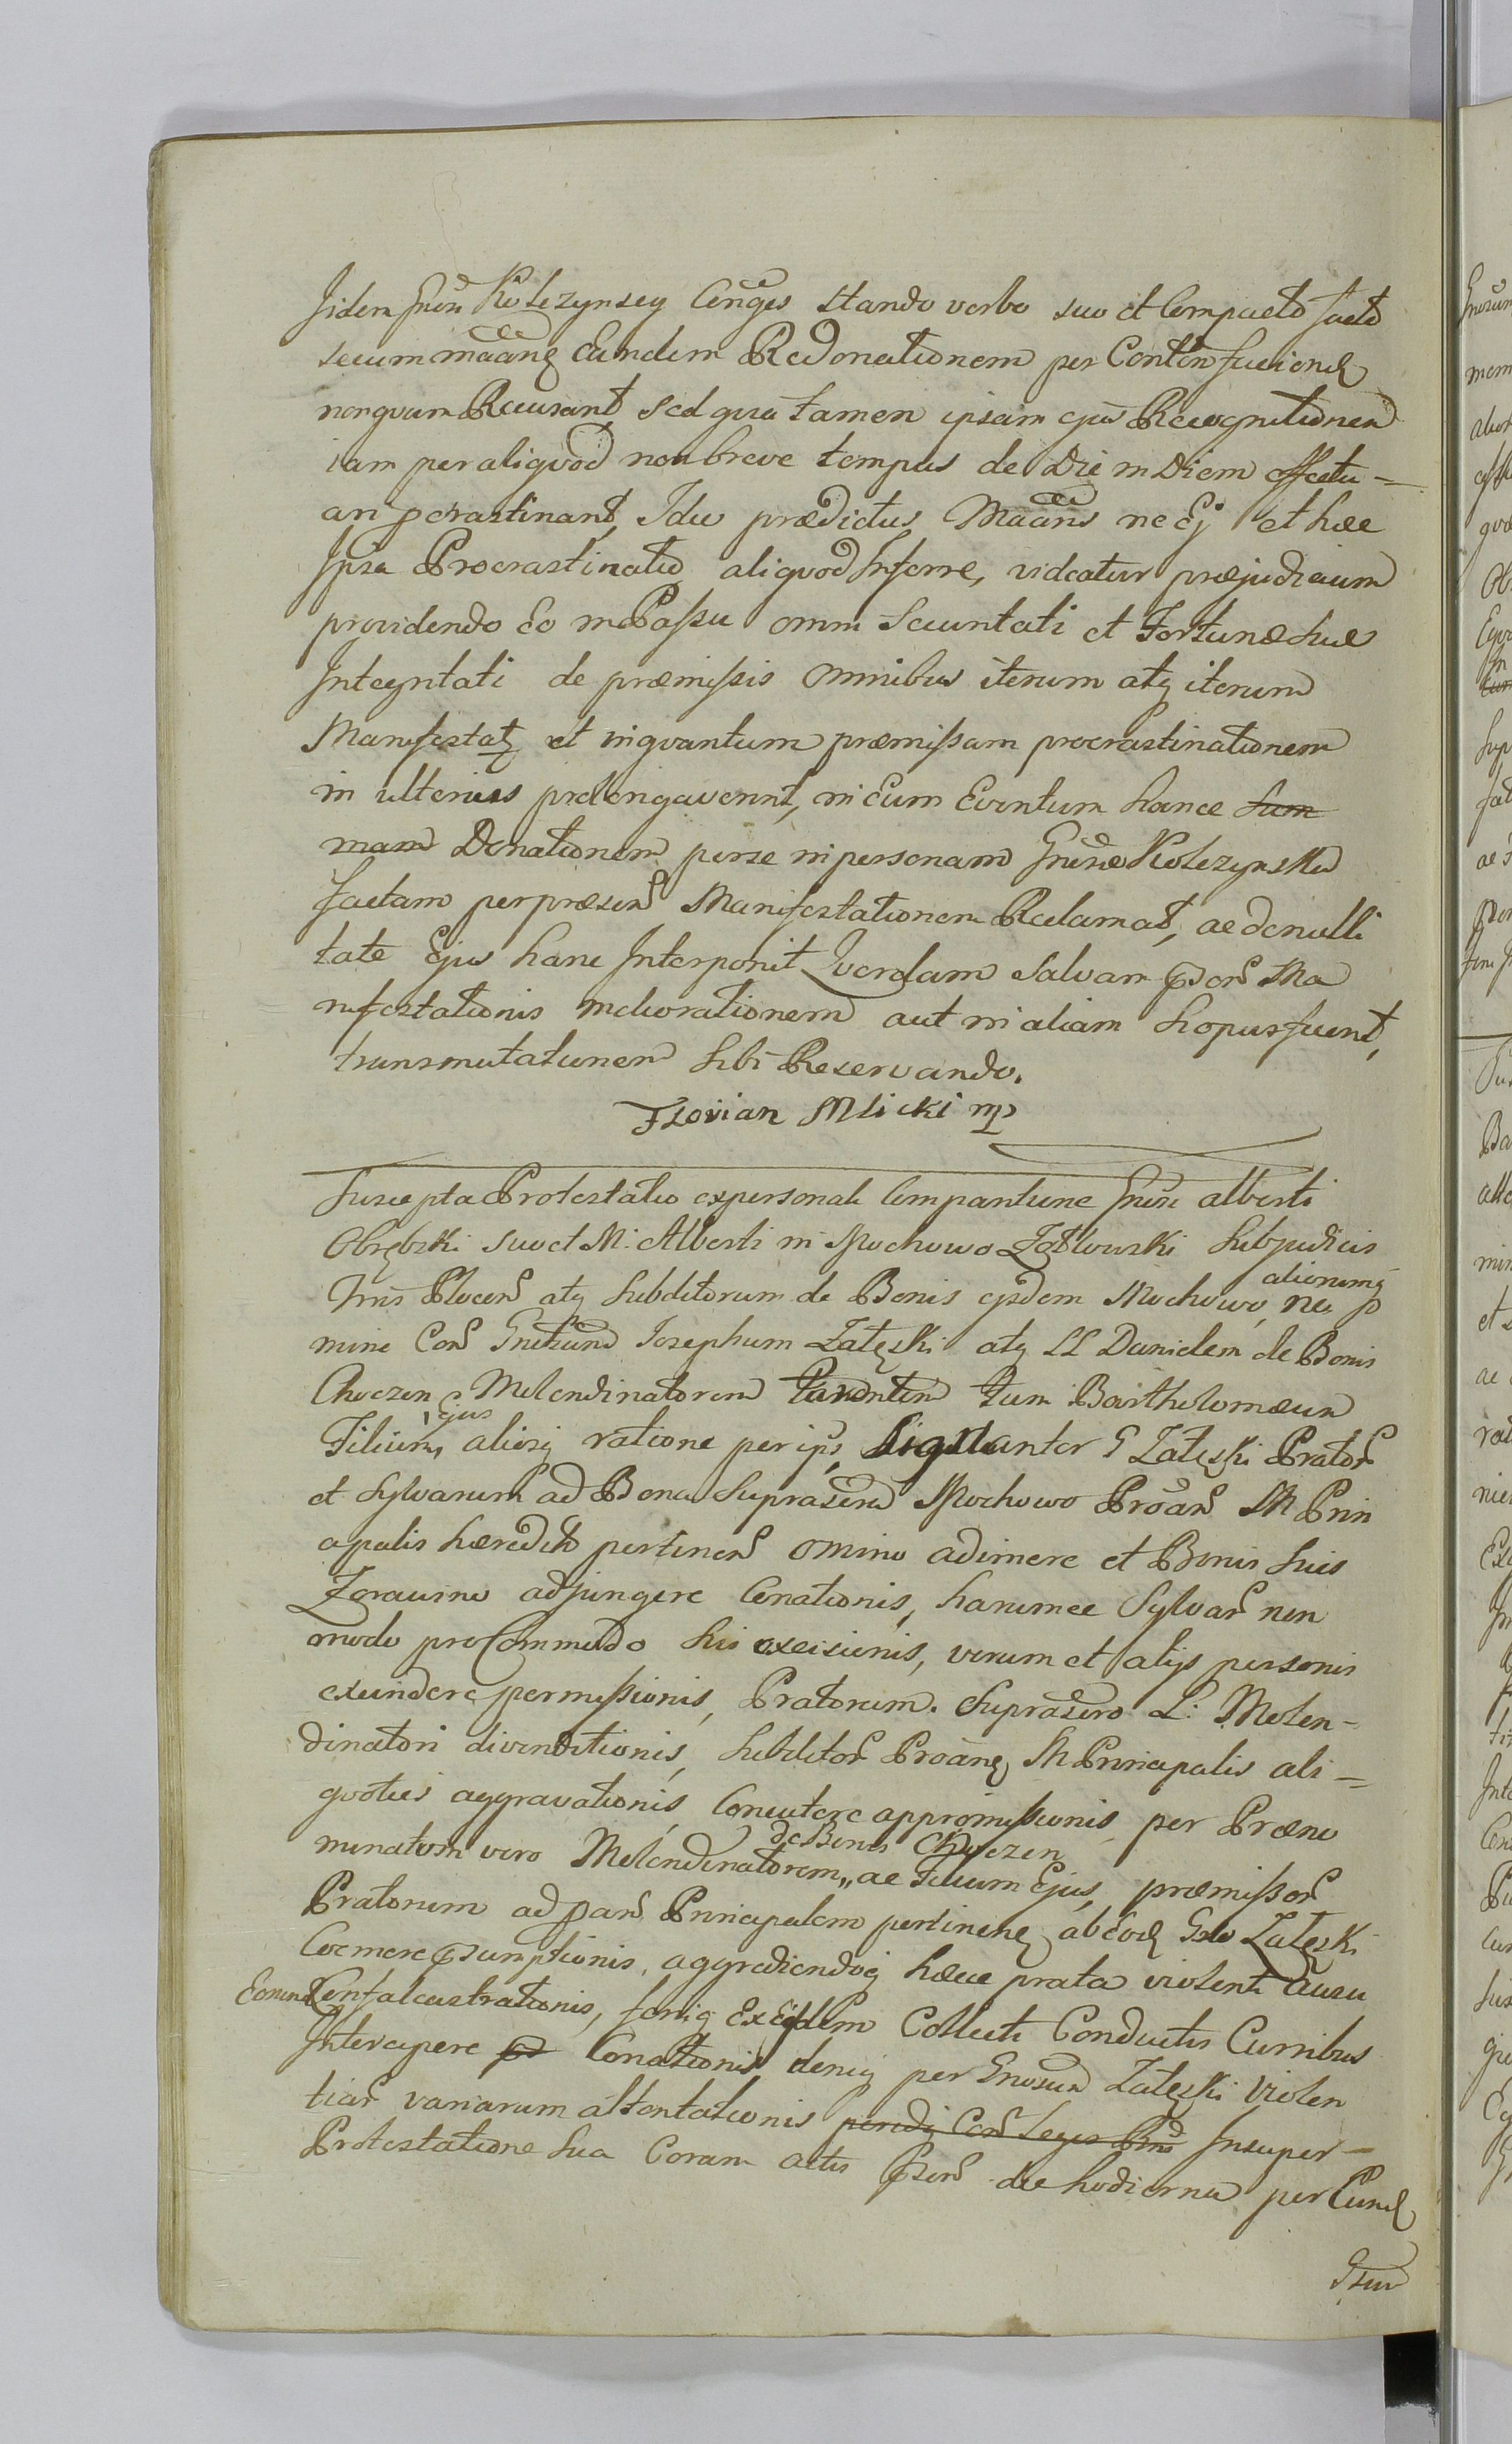 Iidem Gnosi Kolczynscy Conges stando verbo suo et Compacto facto
secum maan̄e Eandem Redonationem per Conten̄ fuciend
nonquam Recusant, sed quia tamen ipsam ejus Recognitionem
iam per aliquod non breve tempus de Die in Diem effectu-
ari pcrastinant, Ideo prædictus Maans ne Ej et hæc
Ipsa Procrastinatio aliquod Inferre, videatur præjudicium
providendo Eo in Passu omni Securitati et Fortunæ Suæ
Integritati de præmissis Omnibus iterum atq iterum
Manifestatq et inquantum præmissam procrastinationem
in ulterius prolongaverint, in Eum Eventum hance Sum
mam Donationem per se in personam Gnosæ Kolczynska
factam per præsen Manifestationem Reclamat, ac de nulli
tate Ejus hanc Interponit Querelam Salvam Psen Ma
nifestationis meliorationem aut in aliam Si opus fuerit,
transmutationem Sibi Reservando.
Florian Mlicki mp
Suscepta Protestatio ex personali Comparitione Gnosi Alberti
Obrębski suo et M: Alberti in Mochowo Żółtowski Subjudicis
Tnis Plocen atq Subditorum de Bonis ejsdem Mochowo, aliorumq no p
mine Con Gnosum Josephum Załęski atq LL Danielem de Bonis
Choczen Molendinatorem Parentem tum Bartholomæum
Filium Ejus, aliosq ratione per ips Signanter G Załęski Prator
et Sylvarum ad Bona Suprascrip Mochowo Proan M Prin
cipalis hæredit pertinen omino adimere et Bonis Suis
Żorawino adjungere Conationis, harumce Sylvar non
modo pro Commodo Sui excisionis, verum et alijs personis
excindere permissionis, Pratorum. Suprascro L: Molen-
dinatori divenditionis, Subditor Proang M Principalis ali-
quoties aggravationis, Concutere appromissionis per Præno
minatum vero Molendinatorem de Bonis Choczen „ ac Filium Ejus, præmissor
Pratorum ad Pan Principalem pertinene, ab Eod Gso Załęski
Coemere Psumptionis, aggrediendoq hæcce prata violenti ausu
Eorund Confalcastrationis, fœniq Ex Eisdem Collecti Conductis Curribus
Intercipere Conationis, deniq per Gnosum Załęski Violen
tiar variarum attentationis peredi Con Leges Insuper-
Protestatione Sua Coram actis Psen die hodierna per Eund
Gsum